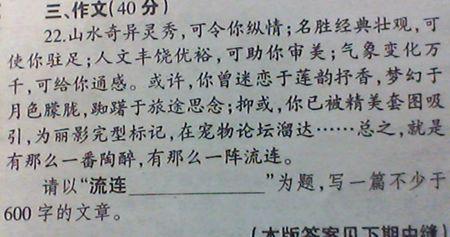 三、作文(40 分)
22.山水奇异灵秀,可令你纵情;名胜经典壮观,可
使你驻足;人文丰饶优裕,可助你审美;气象变化万
千,可给你通感。或许,你曾迷恋于莲韵抒香,梦幻于
月色朦胧,踟躇于旅途思念;抑或,你已被精美套图吸
引,为丽影完型标记,在宠物论坛溜达……总之,就是
有那么一番陶醉,有那么一阵流连。
请以“流连____________”为题,写一篇不少于
600 字的文章。
(本版答案见下期中缝)